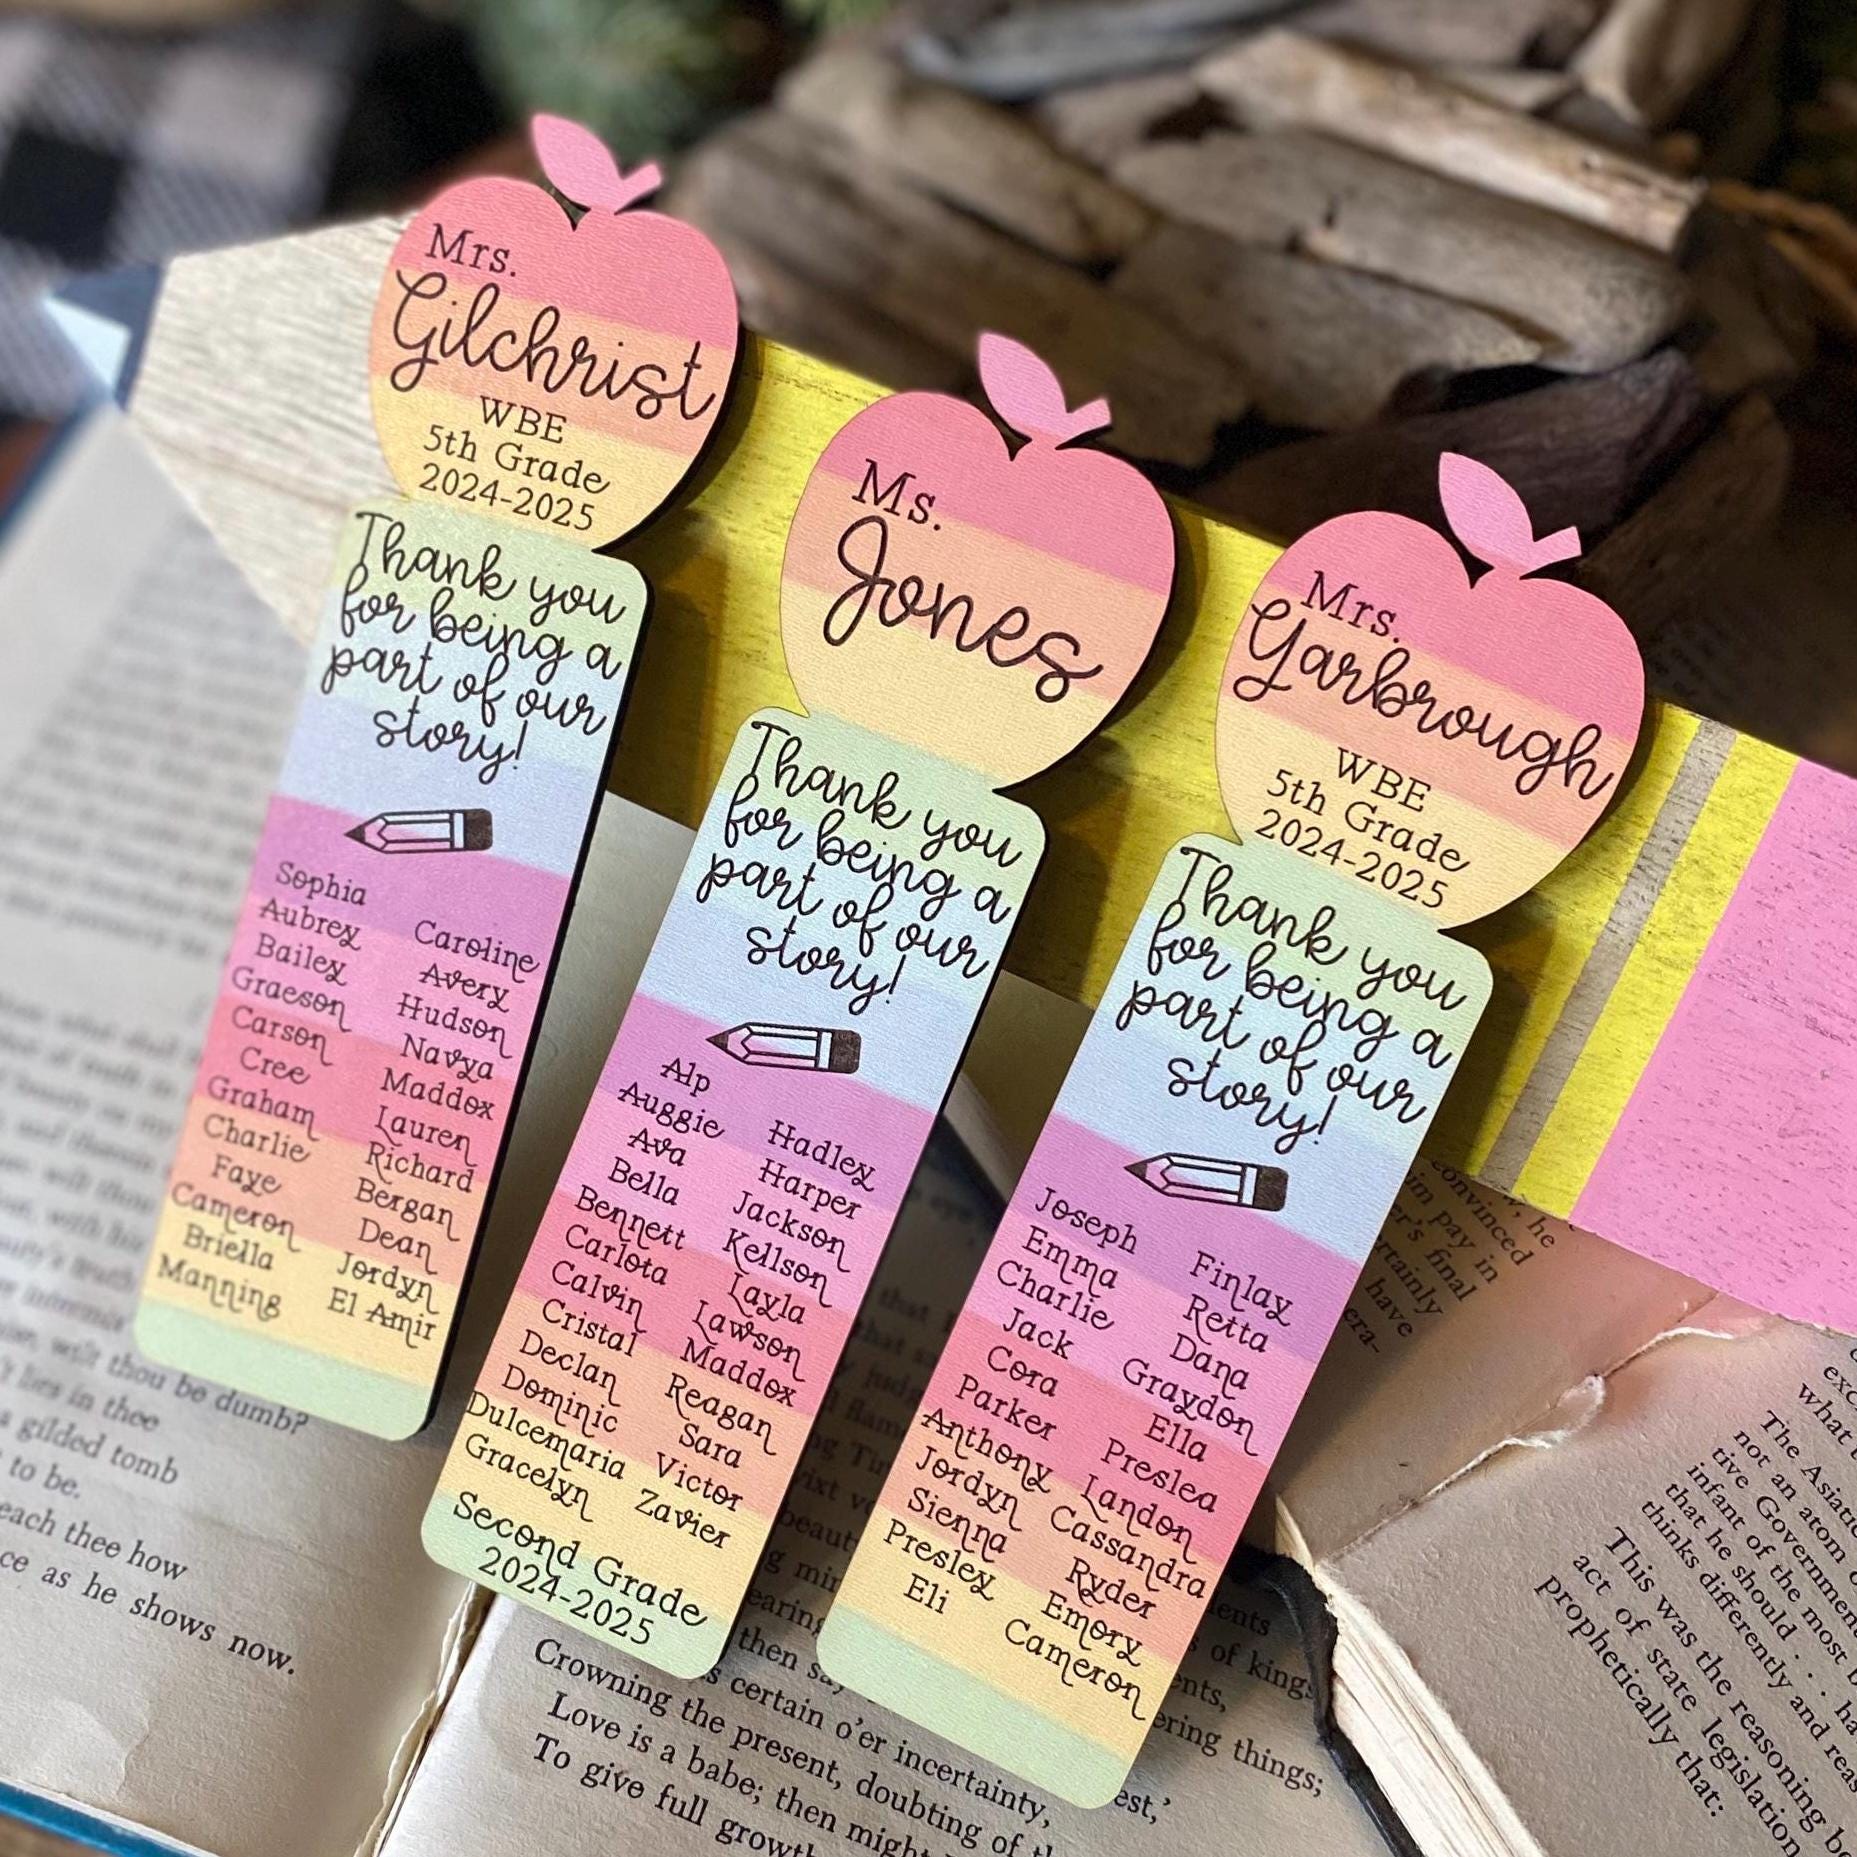 Mrs.
Gilchrist
WBE
5th Grade
2024-2025
Thank you
for being a
part of our
story!
Sophia
Aubrey
Bailey
Graeson
Carson
Cree
Graham
Charlie
Faye
Cameron
Briella
Manning
Caroline
Avery
Hudson
Navya
Maddox
Lauren
Richard
Bergan
Dean
Jordyn
El Amir
Ms.
Jones
Thank you
for being a
part of our
story!
Alp
Auggie
Ava
Bella
Bennett
Carlota
Calvin
Cristal
Declan
Dominic
Dulcemaria
Gracelyn
Hadley
Harper
Jackson
Kellson
Layla
Lawson
Maddox
Reagan
Sara
Victor
Zavier
Second Grade
2024-2025
Mrs.
Yarbrough
WBE
5th Grade
2024-2025
Thank you
for being a
part of our
story!
Joseph
Emma
Charlie
Jack
Cora
Parker
Anthony
Jordyn
Sienna
Presley
Eli
Finlay
Retta
Dana
Graydon
Ella
Preslea
Landon
Cassandra
Ryder
Emory
Cameron
wilt thou be dumb?
lies in thee
a gilded tomb
to be.
each thee how
as he shows now.
certain o'er incertainty,
Crowning the present, doubting of
Love is a babe; then might
To give full growth
of kings
things;
convinced
pay in
final
have
The Asiatic
not an atom
tive Government
infant of the most
that he should . . .
thinks differently and
This was the reasoning
act of state legislation
prophetically that: